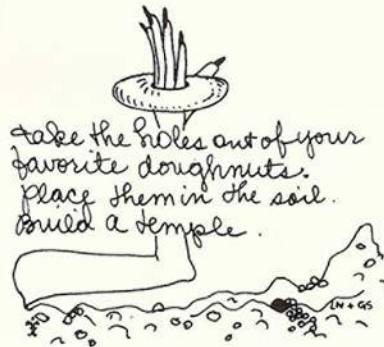 take the holes out of your
favorite doughnuts.
place them in the soil.
Build a temple.
LN + GS